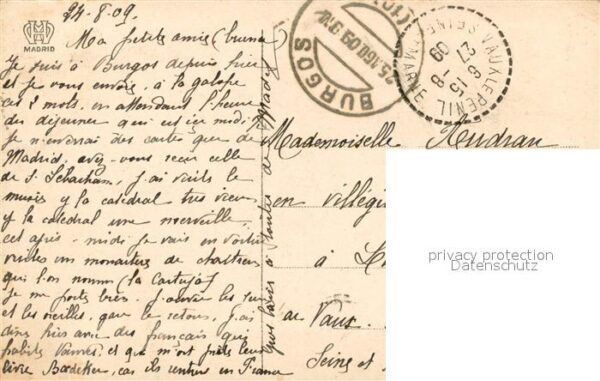 24-8-09.
MADRID
Ma petite amie (buena)
Je suis à Burgos depuis hier
et je vous envoie, à la galope
ces 2 mots, en attendant l'heure
du déjeuner qui est ici midi.
Je n'enverrai des cartes que de
Madrid. avez-vous reçu celle
de S. Sebastian, j'ai visité le
musée y la catédral très vieux
y la catédral une merveille,
cet après-midi je vais en voiture
visiter un monastère de chartreux
que l'on nomme (la Cartuja)
Je me porte bien. J'ouvre les yeux
et les oreilles, gare le retour, j'ai
diné hier avec des français qui
habite Vanves, et que m'ont prêté leur
livre Baedeker, car ils rentrent en France
BURGOS
25.AGO.09
VAUX-LE-PENIL
SEINE-ET-MARNE
15
27-8
09
Mademoiselle Audran
en villégi
à
au Vaux
Seine et
privacy protection
Datenschutz